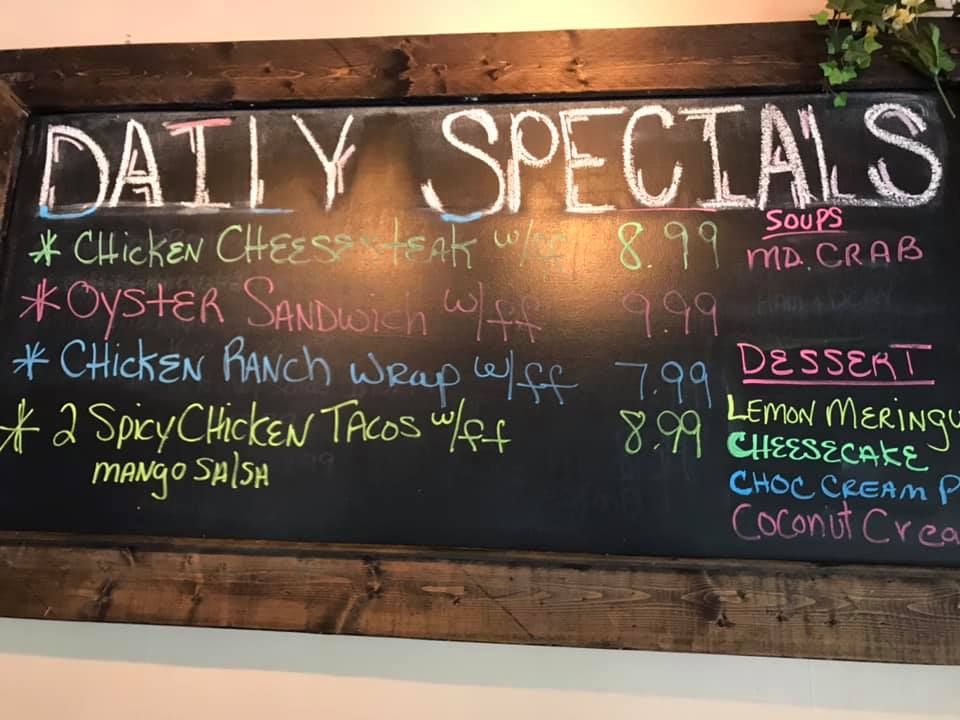 DAILY SPECIALS
* CHICKEN CHEESESTEAK w/ff 8.99
* OYSTER SANDWICH w/ff 9.99
* CHICKEN RANCH WRAP w/ff 7.99
* 2 SPICY CHICKEN TACOS w/ff 8.99
MANGO SALSA
SOUPS
MD. CRAB
DESSERT
LEMON MERINGU
CHEESECAKE
CHOC CREAM P
COCONUT CREA